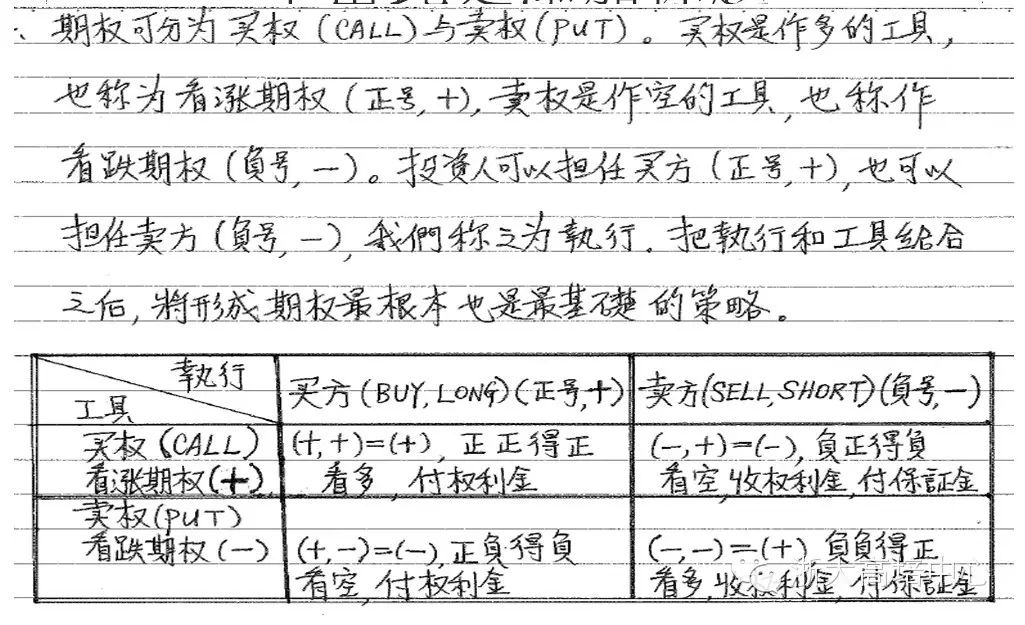 、期权可分为买权(CALL)与卖权(PUT)。买权是作多的工具,
也称为看涨期权(正号,+),卖权是作空的工具,也称作
看跌期权(負号,－)。投资人可以担任买方(正号,+),也可以
担任卖方(負号,－),我們称之为執行.把執行和工具结合
之后,将形成期权最根本也是最基礎的策略。
執行
工具
买方(BUY,LONG)(正号,+)
卖方(SELL,SHORT)(負号,－)
买权(CALL)
看涨期权(+)
(+,+)=(+),正正得正
看多,付权利金
(－,+)=(－),負正得負
看空,收权利金,付保証金
卖权(PUT)
看跌期权(－)
(+,－)=(－),正負得負
看空,付权利金
(－,－)=(+)負負得正
看多,收权利金,付保証金